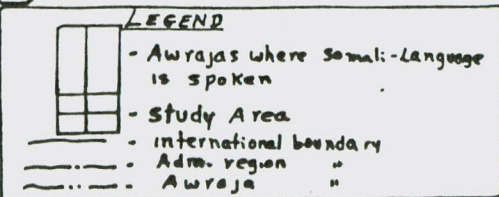 LEGEND
- Awrajas where Somali-Language
is spoken
- Study Area
- international boundary
- Adm. region "
- Awraja "